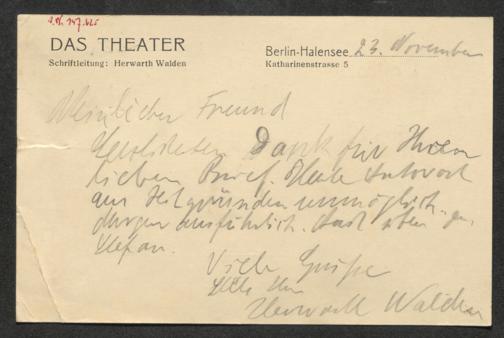 DAS THEATER
Schriftleitung: Herwarth Walden
Berlin-Halensee, 23. November
Katharinenstrasse 5
Mein lieber Freund
Herzlichsten Dank für Ihren
lieben Brief. Heute Antwort
aus Zeitgründen unmöglich.
morgen ausführlich.
Viele Grüße
Ihr
Herwarth Walden